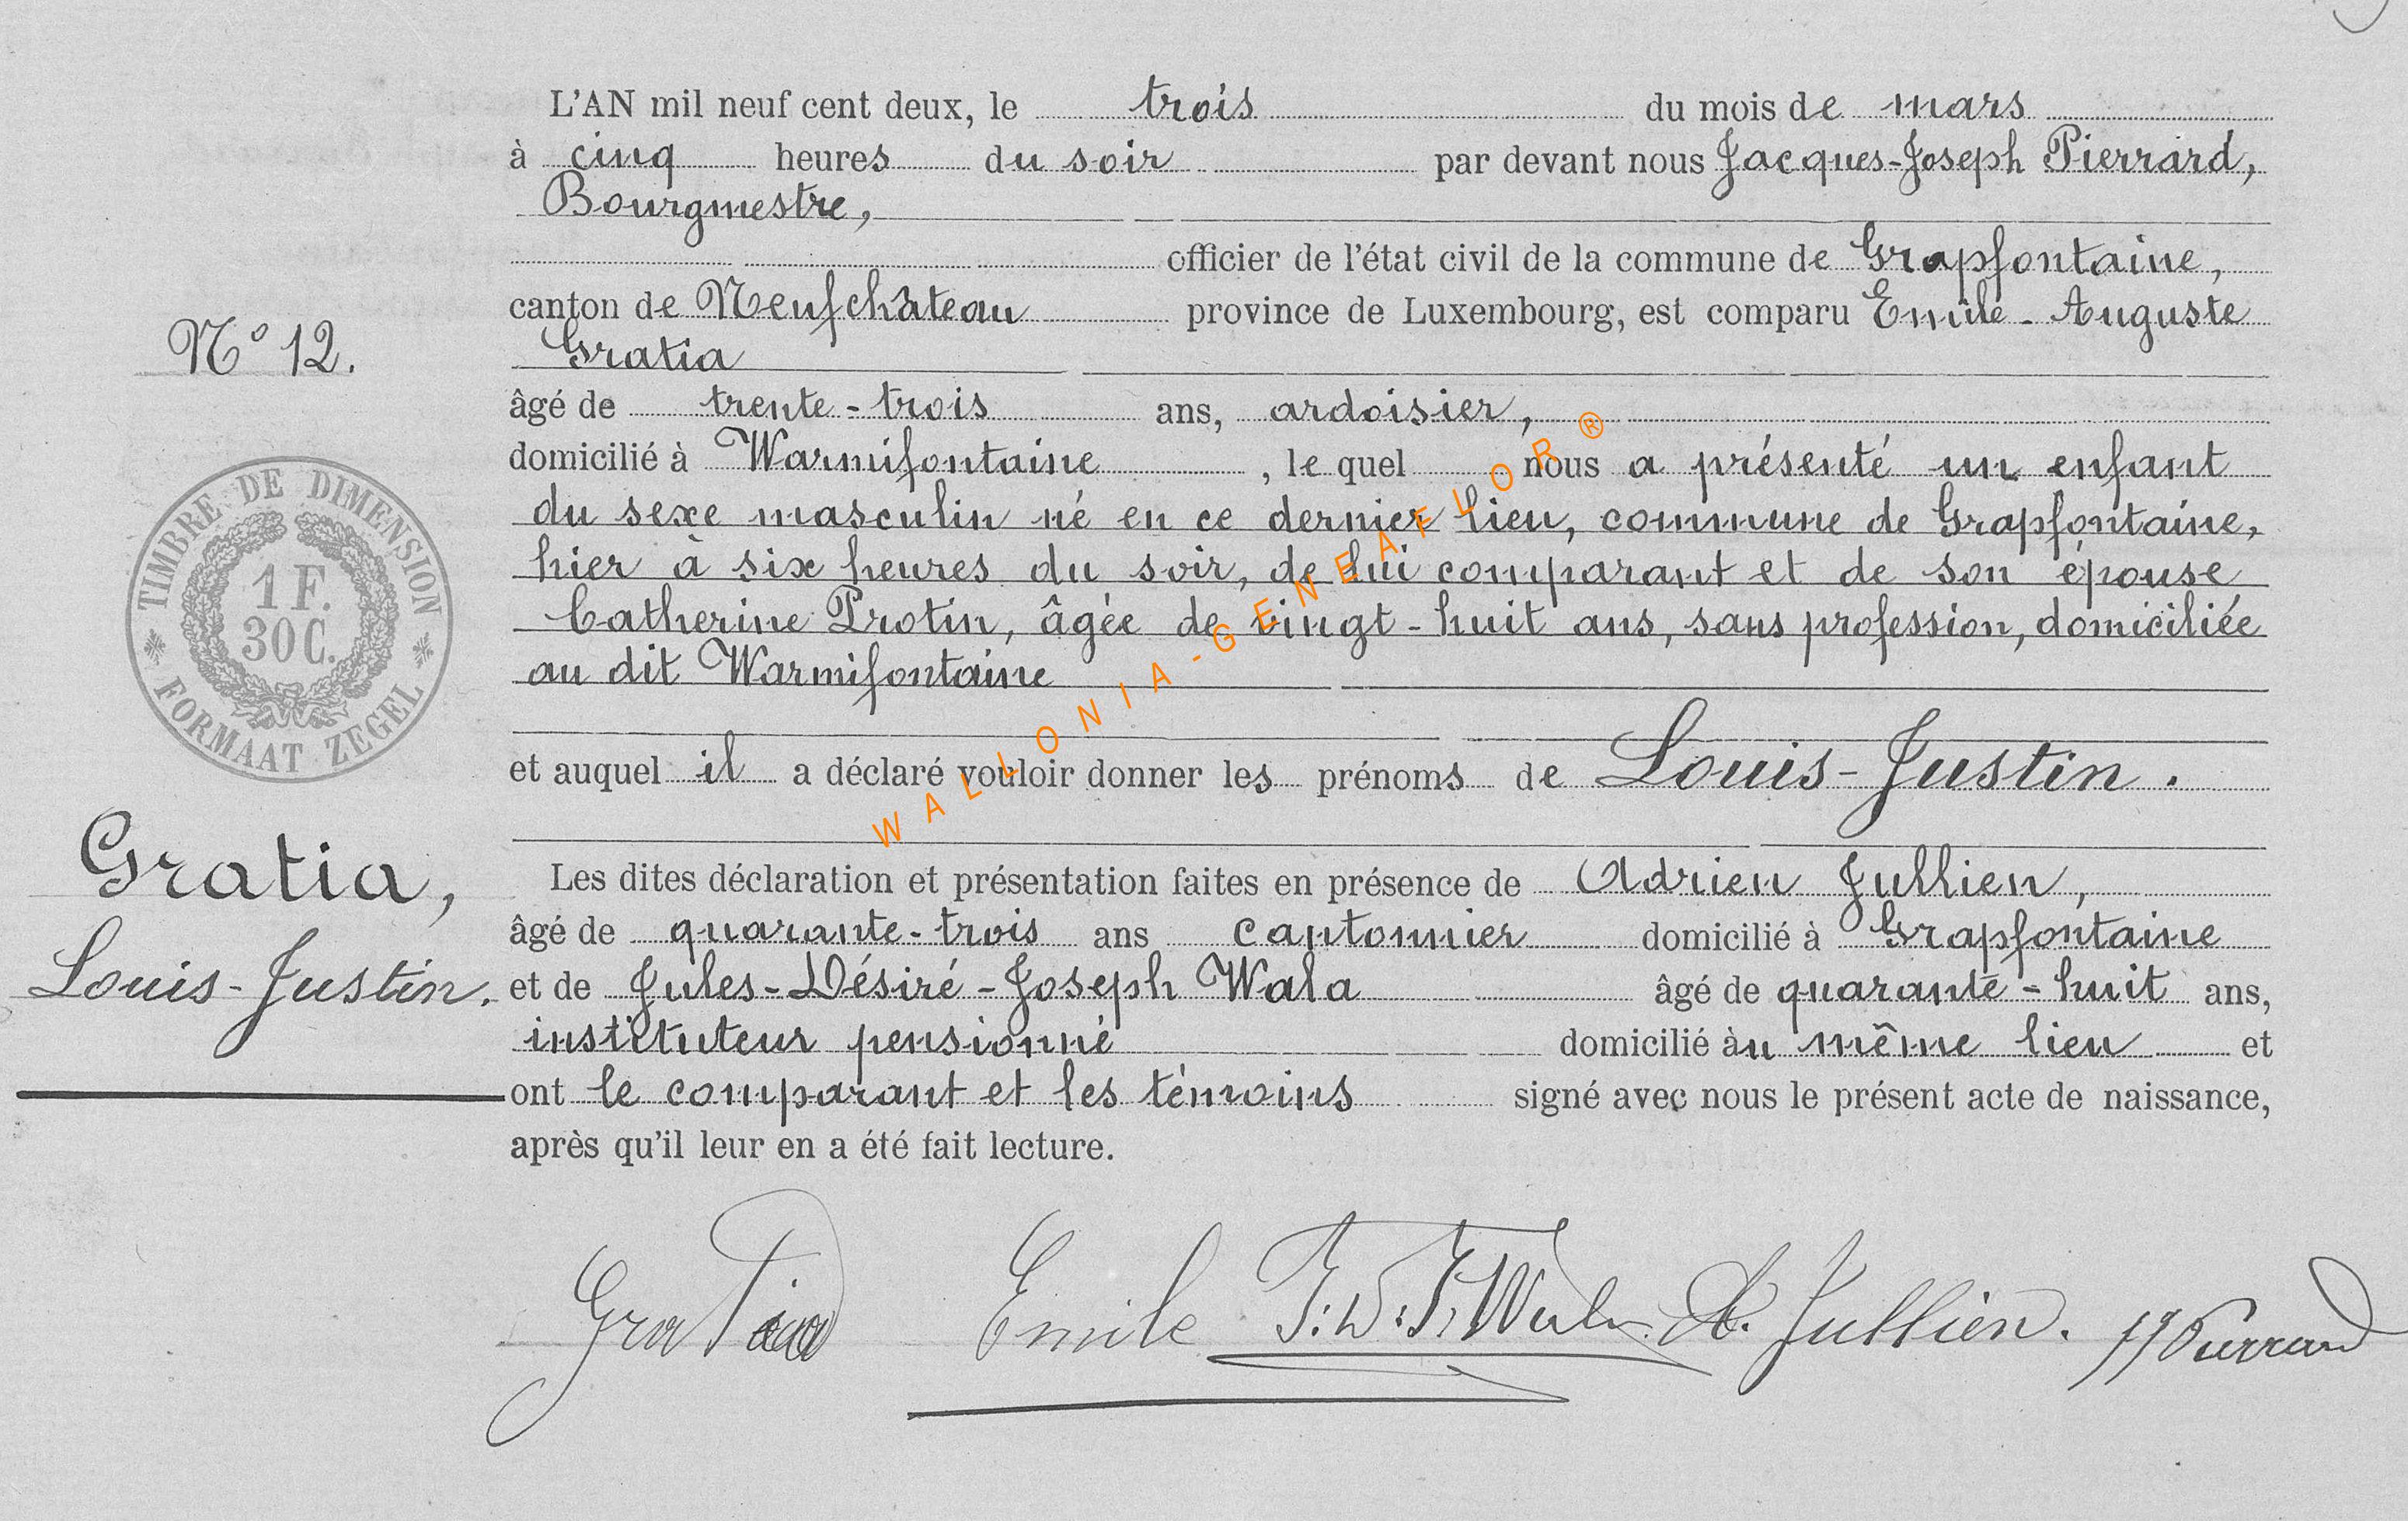 L'AN mil neuf cent deux, le trois du mois de mars
à cinq heures du soir par devant nous Jacques-Joseph Pierrard,
Bourgmestre,
officier de l'état civil de la commune de Grapfontaine,
canton de Neufchâteau province de Luxembourg, est comparu Emile-Auguste
N° 12.
Gratia
âgé de trente-trois ans, ardoisier,
domicilié à Warmifontaine, le quel nous a présenté un enfant
du sexe masculin né en ce dernier lieu, commune de Grapfontaine,
hier à six heures du soir, de lui comparant et de son épouse
Catherine Protin, âgée de vingt-huit ans, sans profession, domiciliée
au dit Warmifontaine
TIMBRE DE DIMENSION
1 F.
30 C.
FORMAAT ZEGEL
et auquel il a déclaré vouloir donner les prénoms de Louis-Justin.
WALLONIA-GENEAFLOR®
Gratia,
Louis-Justin.
Les dites déclaration et présentation faites en présence de Adrien Jullien,
âgé de quarante-trois ans cantonnier domicilié à Grapfontaine
et de Jules-Désiré-Joseph Wala âgé de quarante-huit ans,
instituteur pensionné domicilié àu même lieu et
ont le comparant et les témoins signé avec nous le présent acte de naissance,
après qu'il leur en a été fait lecture.
Gratia Emile J.D.J. Wala A. Jullien. JJPierrard